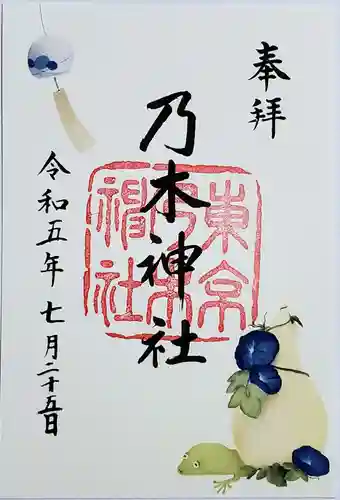 奉拝
乃木神社
東京乃木神社
令和五年七月二十五日